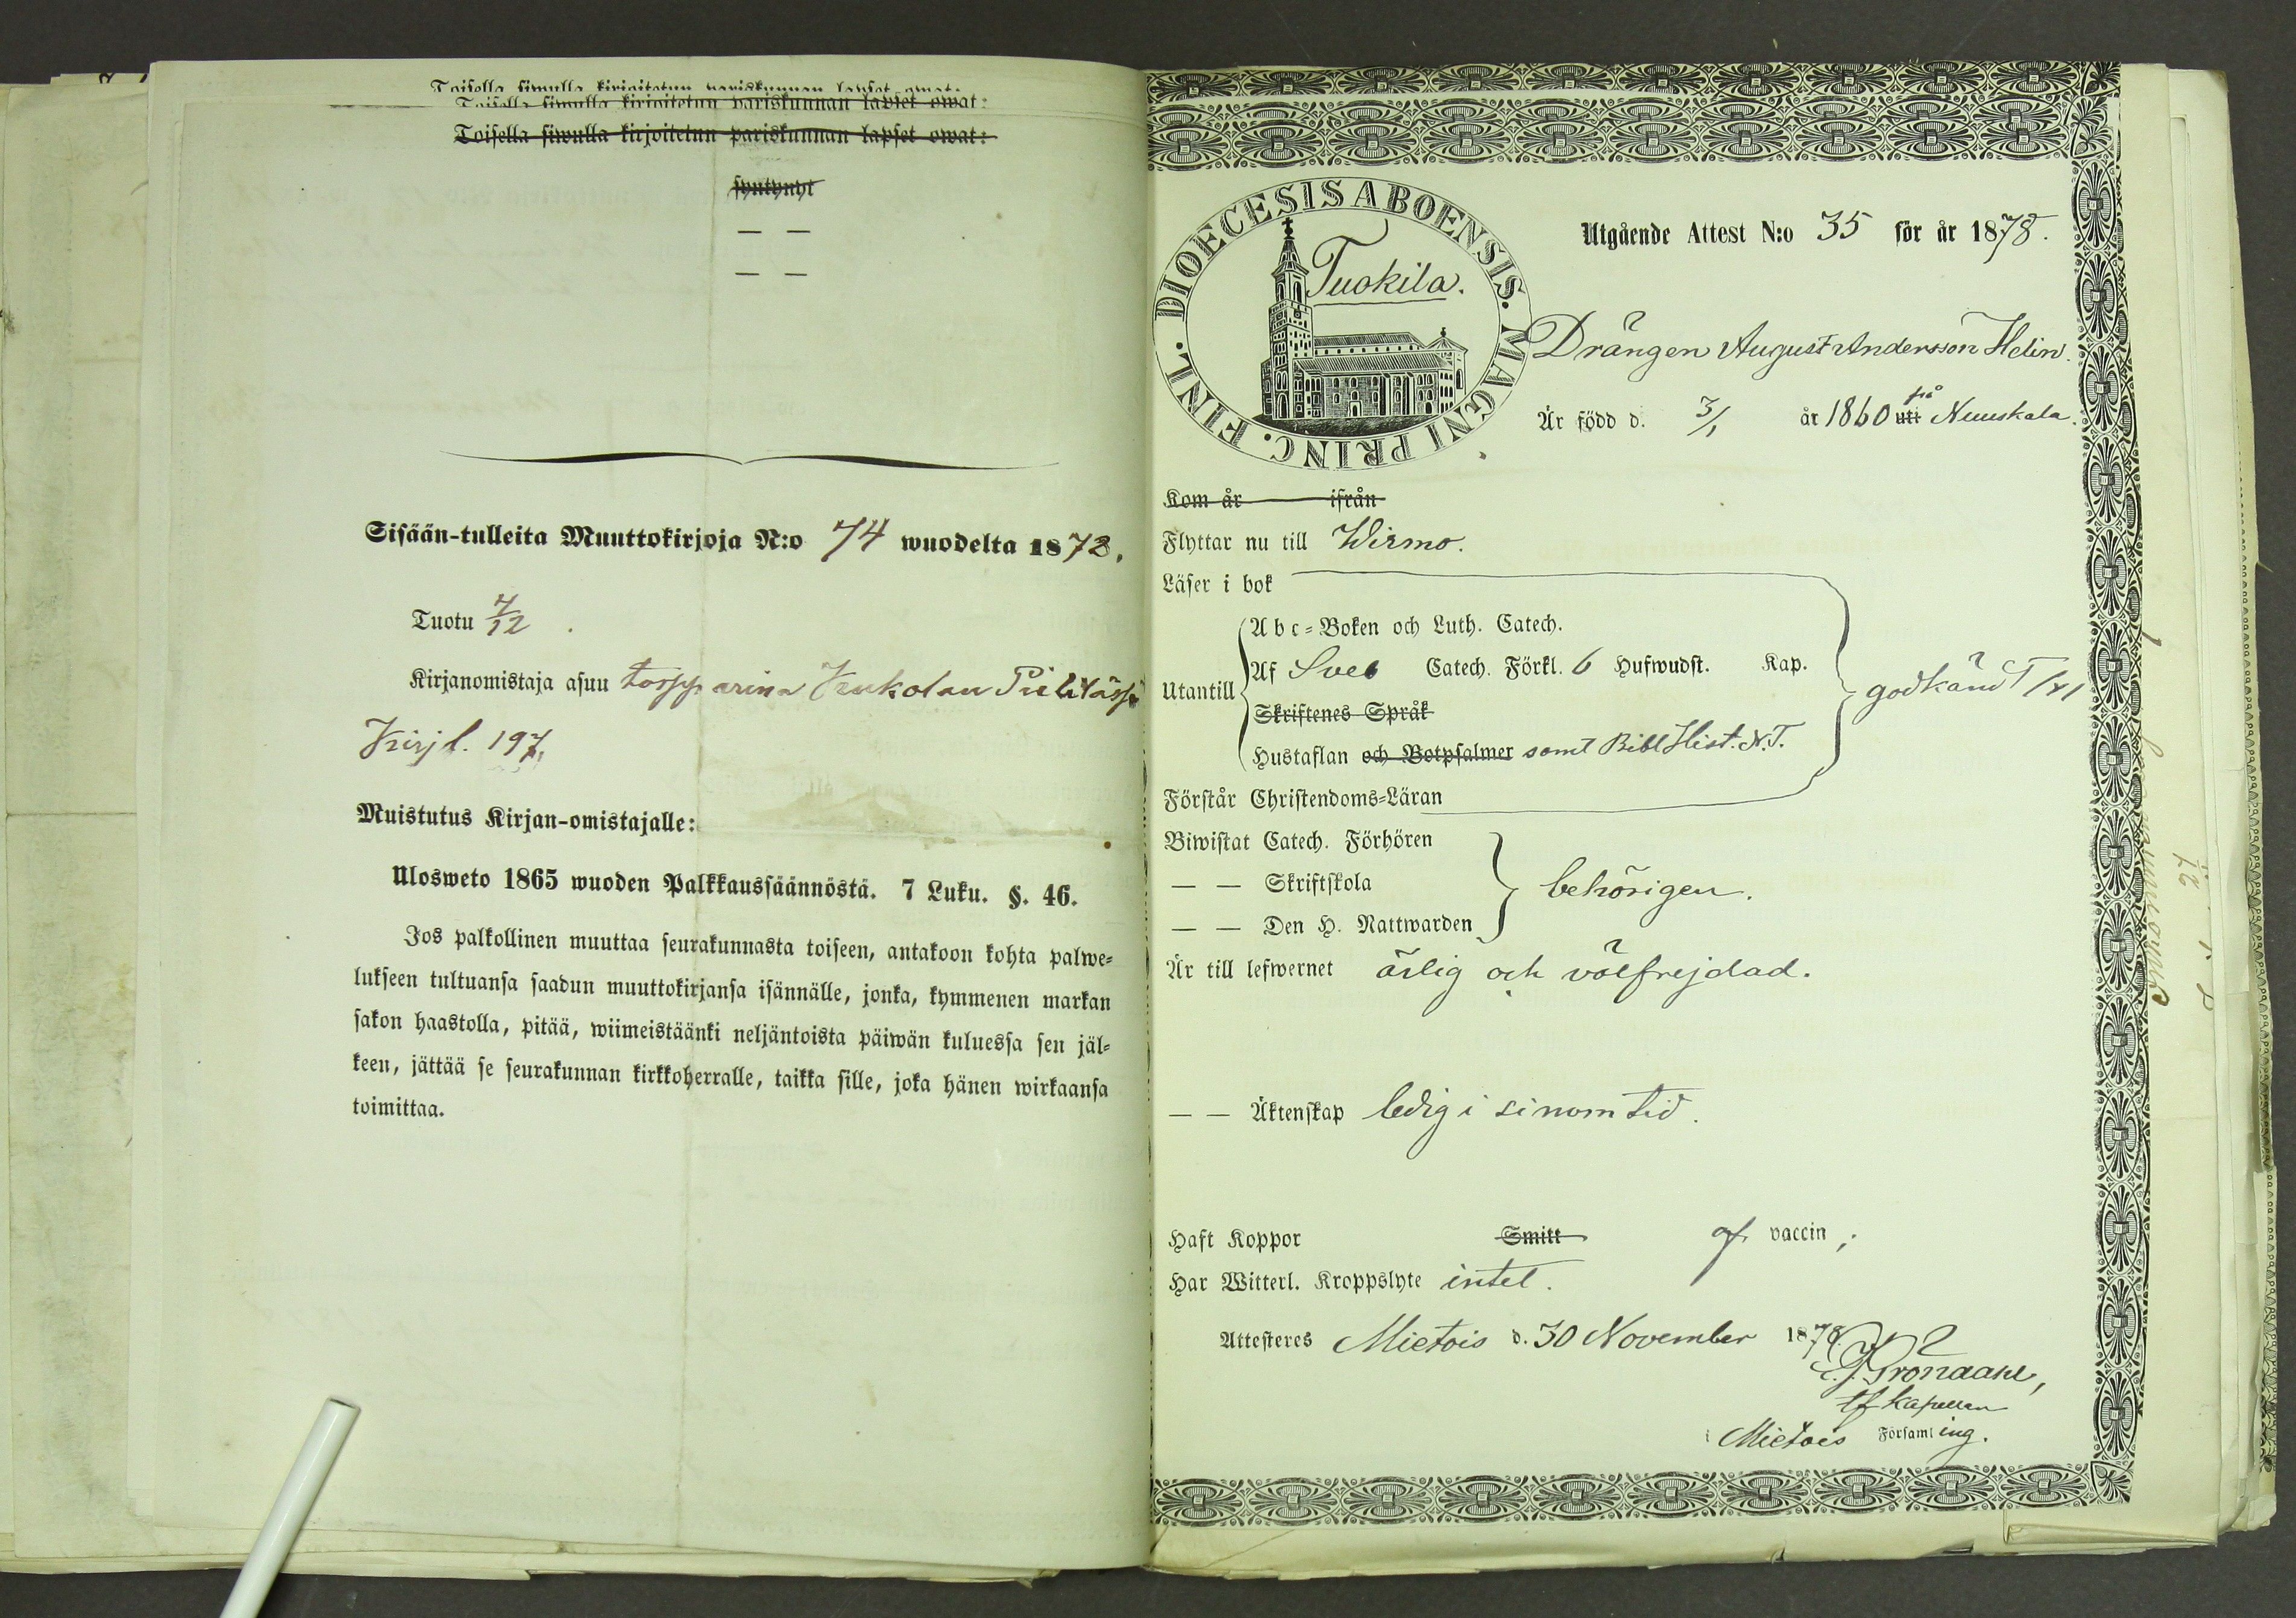 Toisella siwulla kirjoitetun pariskunnan lapset owat:
Toisella siwulla kirjoitetun pariskunnan lapset owat:
Toisella siwulla kirjoitetun pariskunnan lapset owat:
syntynyt
— —
— —
Sisään-tulleita Muuttokirjoja N:o 74 wuodelta 1878.
Tuotu 7/12
Kirjanomistaja asuu
Kirj l. 197,
Muistutus Kirjan-omistajalle:
Ulosweto 1865 wuoden Palkkaussäännöstä. 7 Luku. §. 46.
Jos palkollinen muuttaa seurakunnasta toiseen, antakoon kohta palwe-
lukseen tultuansa saadun muuttokirjansa isännälle, jonka, kymmenen markan
sakon haastolla, pitää, wiimeistäänki neljäntoista päiwän kuluessa sen jäl-
keen, jättää se seurakunnan kirkkoherralle, taikka sille, joka hänen wirkaansa
toimittaa.
DIOECESIS ABOENSIS. MAGNI PRINC. FINL.
Tuokila.
Utgående Attest N:o 35 för år 1878.
Drängen August Andersson Helin.
Är född d. 3/1 år 1860 uti på Nuuskala.
Kom år ifrån
Flyttar nu till Wirmo.
Läser i bok
Utantill
Abc-Boken och Luth. Catech.
Af Sveb Catech. Förkl. 6 Hufwudst. Kap.
Skriftenes Språk
Hustaflan och Botpsalmer samt Bibl Hist. N.T.
godkänd
Förstår Christendoms-Läran
Biwistat Catech. Förhören
— — Skriftskola
— — Den H. Nattwarden
behörigen.
Är till lefwernet ärlig och välfrejdad.
— — Äktenskap ledig i sinom tid.
Haft Koppor Smitt af vaccin;
Har Witterl. Kroppslyte intet.
Attesteres Mietois d. 30 November 1878.
tf kapellan
i Mietois Församling.